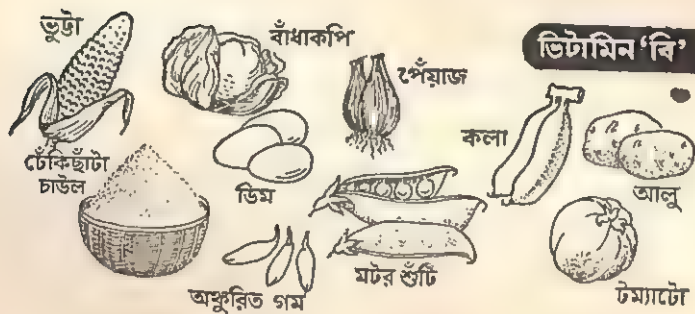 ভুট্টা
বাঁধাকপি
পেঁয়াজ
ভিটামিন ‘বি’
কলা
আলু
ঢেঁকিছাঁটা
চাউল
ডিম
মটর শুঁটি
অঙ্কুরিত গম
টম্যাটো